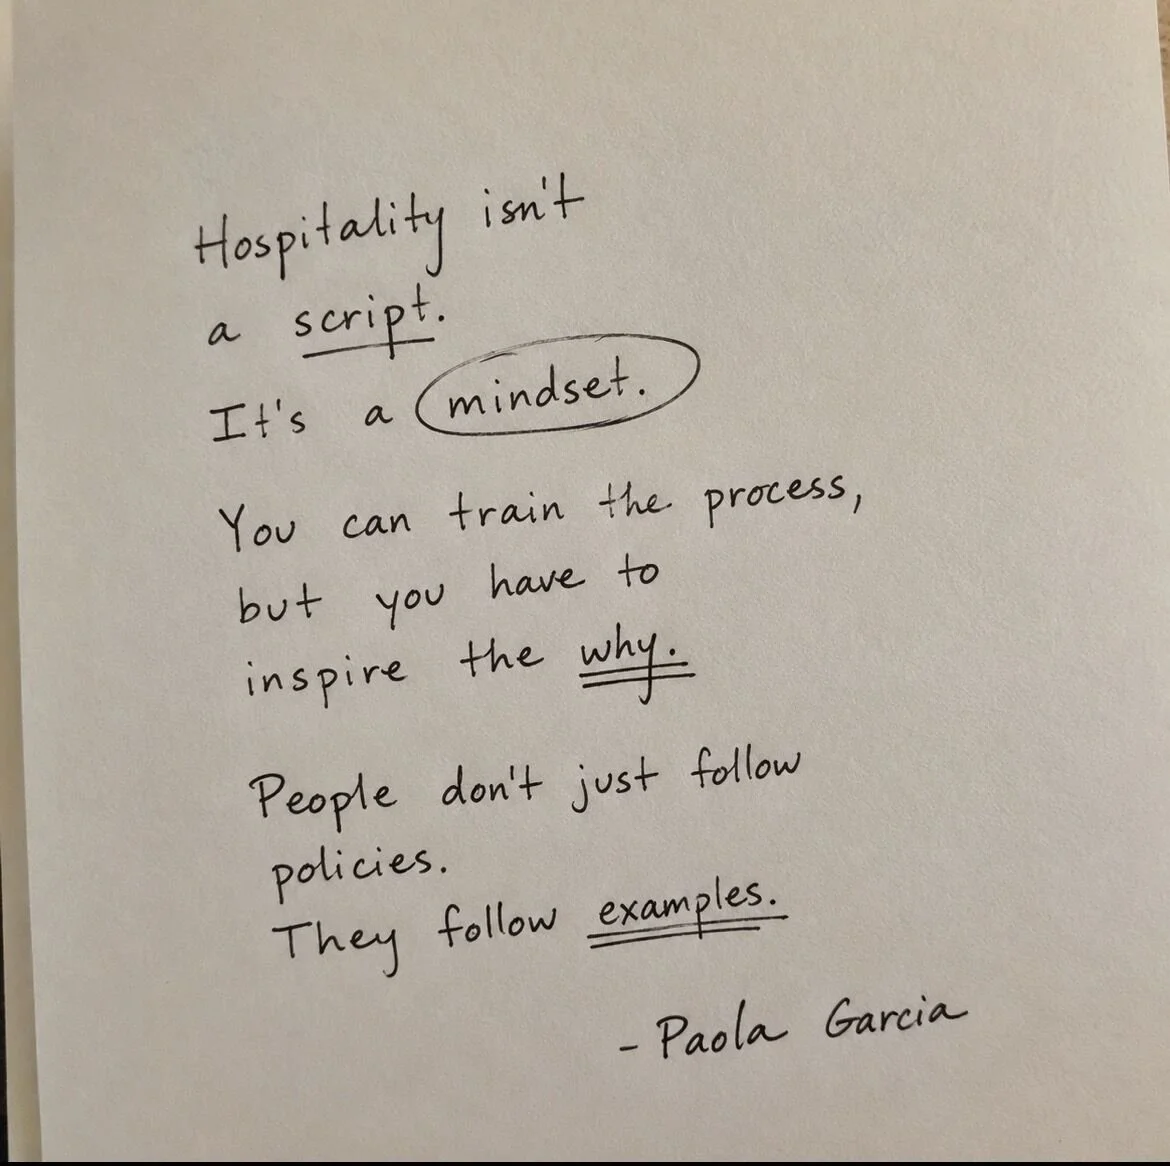 Hospitality isn't
a script.
It's a mindset.
You can train the process,
but you have to
inspire the why.
People don't just follow
policies.
They follow examples.
- Paola Garcia